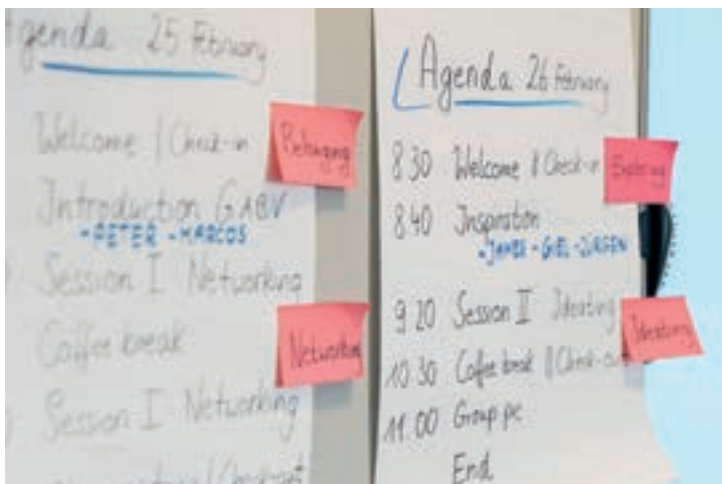 Agenda 25 February
Welcome | Check-in
Belonging
Introduction GABV
- PETER - MARCOS
Session I Networking
Networking
Coffee break
Session I Networking
Agenda 26 February
8.30 Welcome & Check-in
8.40 Inspiration
- JAMES - GIEL - JURGEN
9.20 Session II Ideating
Ideating
10.30 Coffee break || Check-out
11.00 Group pic
End